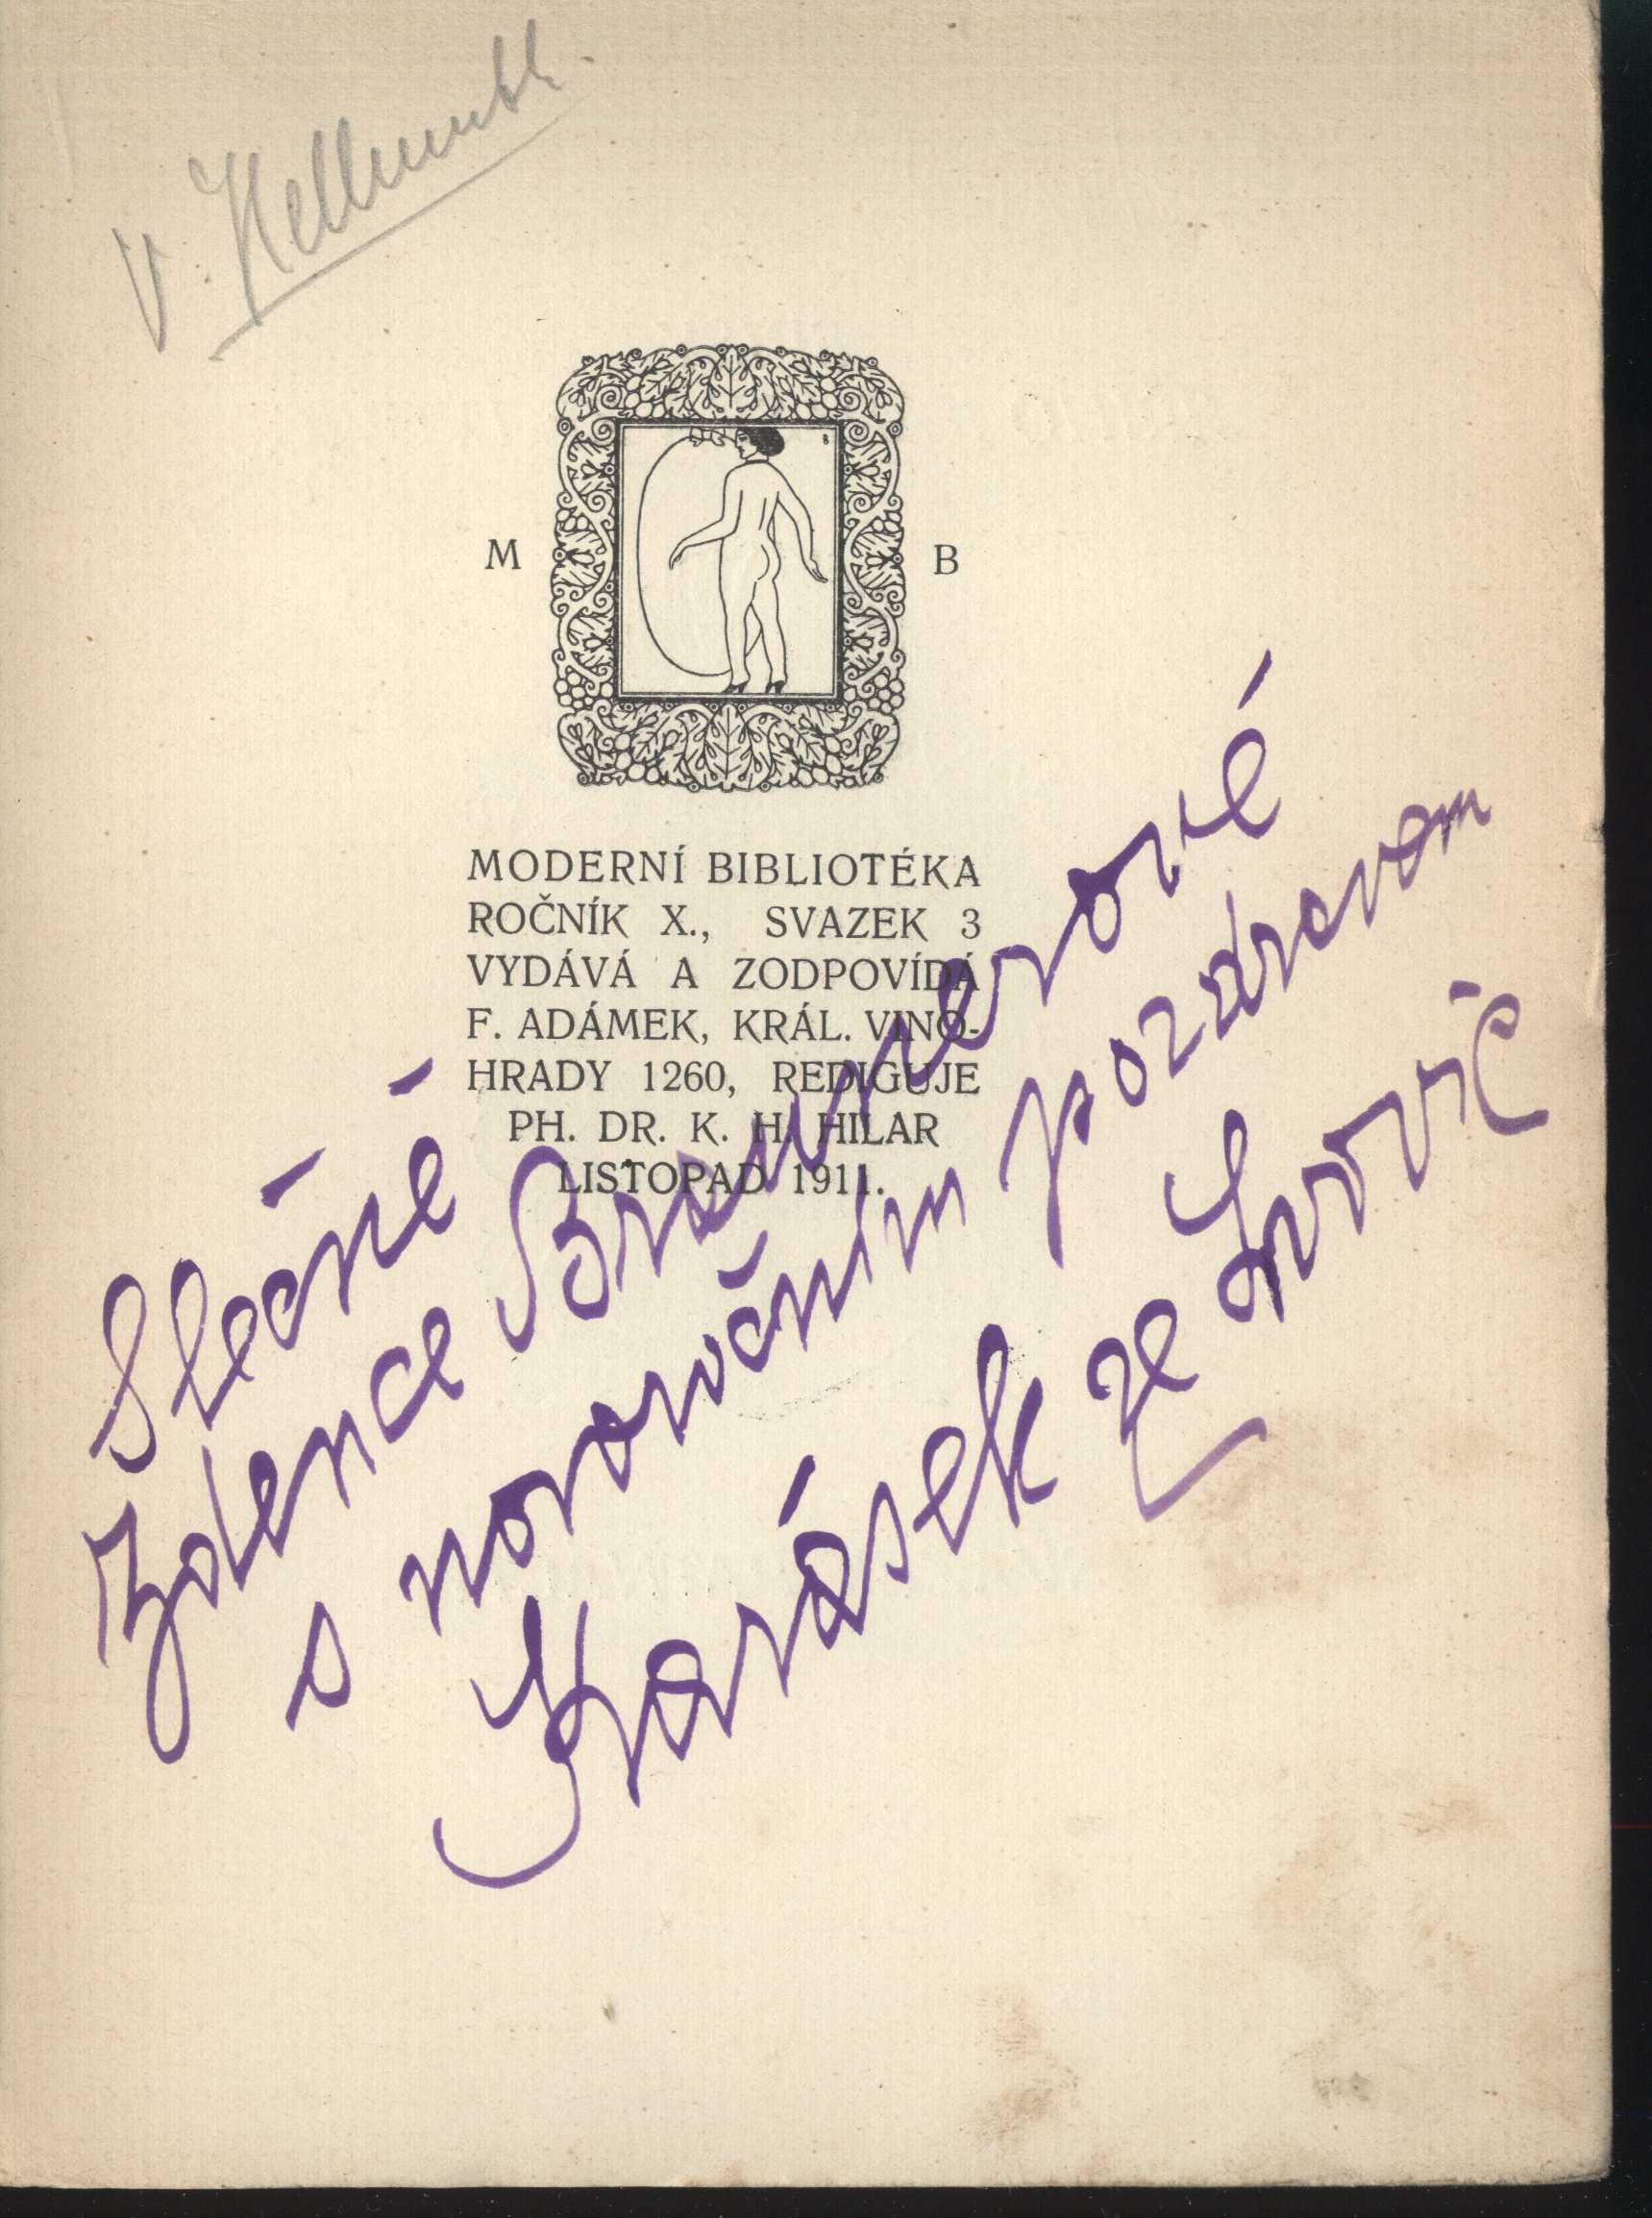 V. Hellmuth.
M B
MODERNÍ BIBLIOTÉKA
ROČNÍK X., SVAZEK 3
VYDÁVÁ A ZODPOVÍDÁ
F. ADÁMEK, KRÁL. VINO-
HRADY 1260, REDIGUJE
PH. DR. K. H. HILAR
LISTOPAD 1911.
Slečně
Zdence Braunerové
s novoročním pozdravem
Karásek ze Lvovic